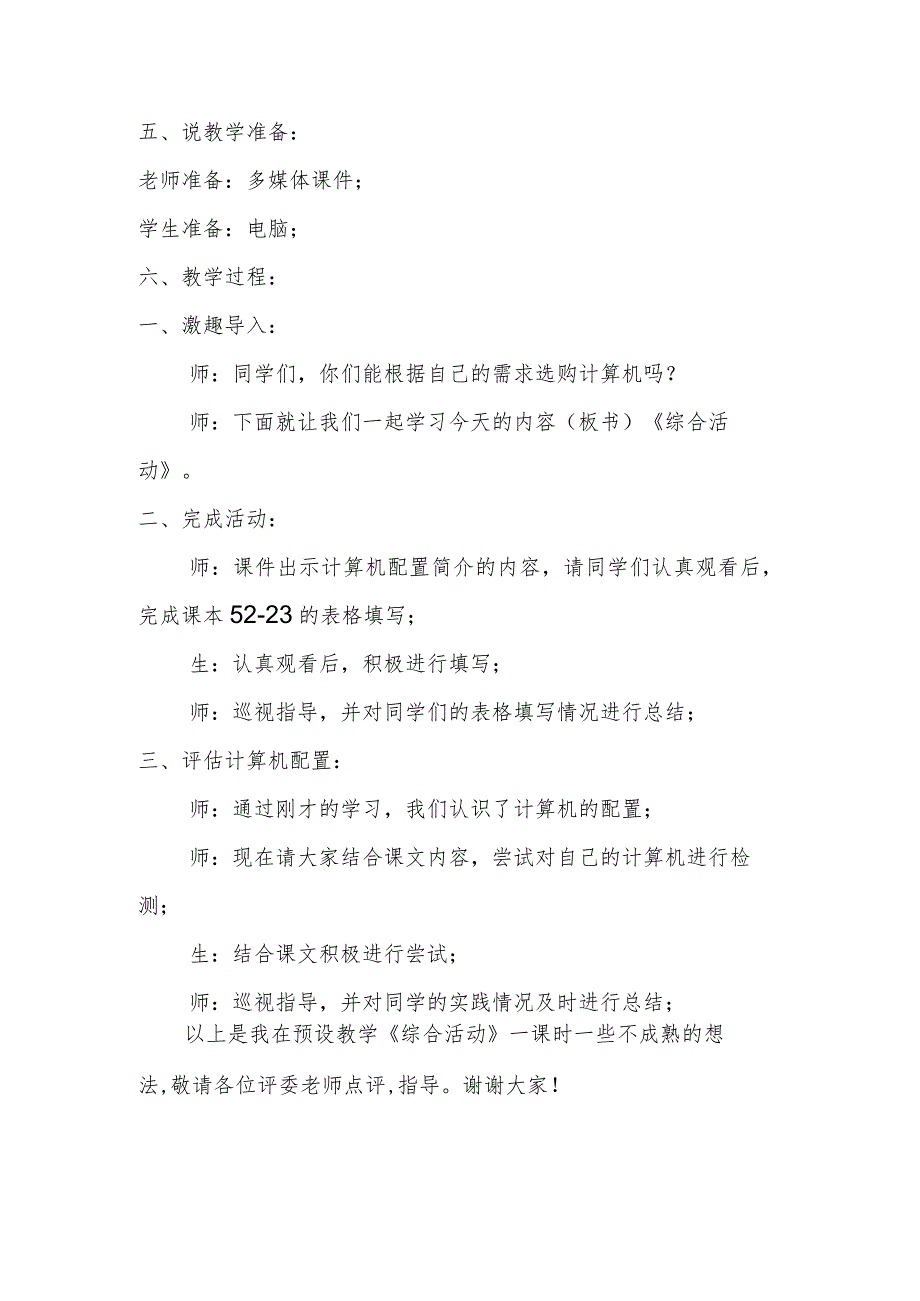 五、说教学准备：
老师准备：多媒体课件；
学生准备：电脑；
六、教学过程：
一、激趣导入：
师：同学们，你们能根据自己的需求选购计算机吗？
师：下面就让我们一起学习今天的内容（板书）《综合活
动》。
二、完成活动：
师：课件出示计算机配置简介的内容，请同学们认真观看后，
完成课本 52-23 的表格填写；
生：认真观看后，积极进行填写；
师：巡视指导，并对同学们的表格填写情况进行总结；
三、评估计算机配置：
师：通过刚才的学习，我们认识了计算机的配置；
师：现在请大家结合课文内容，尝试对自己的计算机进行检
测；
生：结合课文积极进行尝试；
师：巡视指导，并对同学的实践情况及时进行总结；
以上是我在预设教学《综合活动》一课时一些不成熟的想
法,敬请各位评委老师点评,指导。谢谢大家！